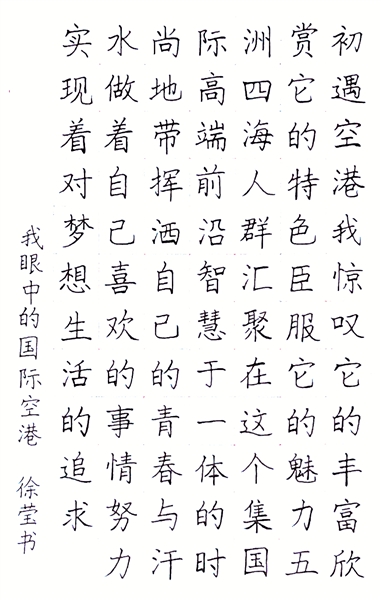 初遇空港我惊叹它的丰富欣
赏它的特色臣服它的魅力五
洲四海人群汇聚在这个集国
际高端前沿智慧于一体的时
尚地带挥洒自己的青春与汗
水做着自己喜欢的事情努力
实现着对梦想生活的追求
我眼中的国际空港 徐莹书